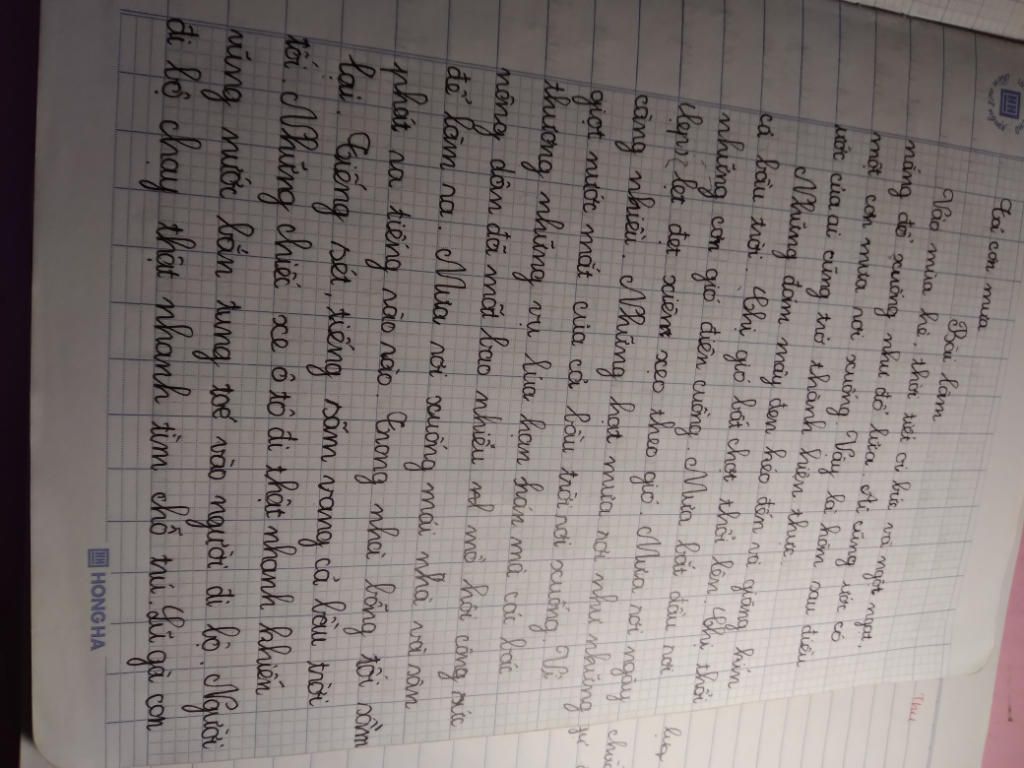 Tả cơn mưa
Bài làm
Vào mùa hè, thời tiết oi bức và ngột ngạt,
nắng đổ xuống như đổ lửa. Ai cũng ước có
một cơn mưa rơi xuống. Vậy là hôm sau điều
ước của ai cũng trở thành hiện thực.
Những đám mây đen kéo đến và giăng kín
cả bầu trời. Chị gió bất chợt thổi lên. Chị thổi
những cơn gió điên cuồng. Mưa bắt đầu rơi,
lẹt đẹt xiên xẹo theo gió. Mưa rơi ngày
càng nhiều. Những hạt mưa rơi như những
giọt nước mắt của cả bầu trời rơi xuống. Vì
thương những vụ lúa hạn hán mà các bác
nông dân đã mất bao nhiêu mồ hôi công sức
để làm ra. Mưa rơi xuống mái nhà và sân
phát ra tiếng rào rào. Trong nhà bỗng tối sầm
lại. Tiếng sét, tiếng sấm vang cả bầu trời
tối. Những chiếc xe ô tô đi thật nhanh khiến
vũng nước bắn tung toé vào người đi bộ. Người
đi bộ chạy thật nhanh tìm chỗ trú. Lũ gà con
HONG HA
Thu